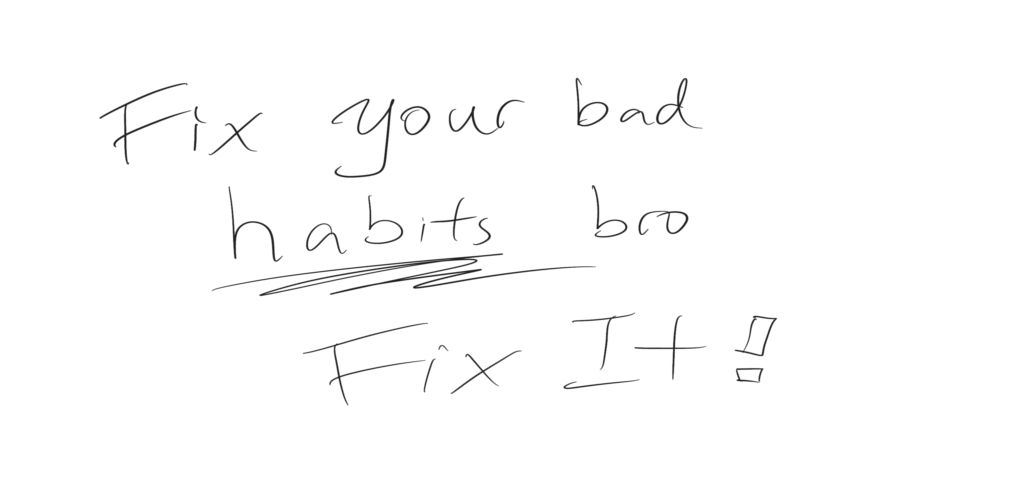 Fix your bad
habits bro
Fix It!